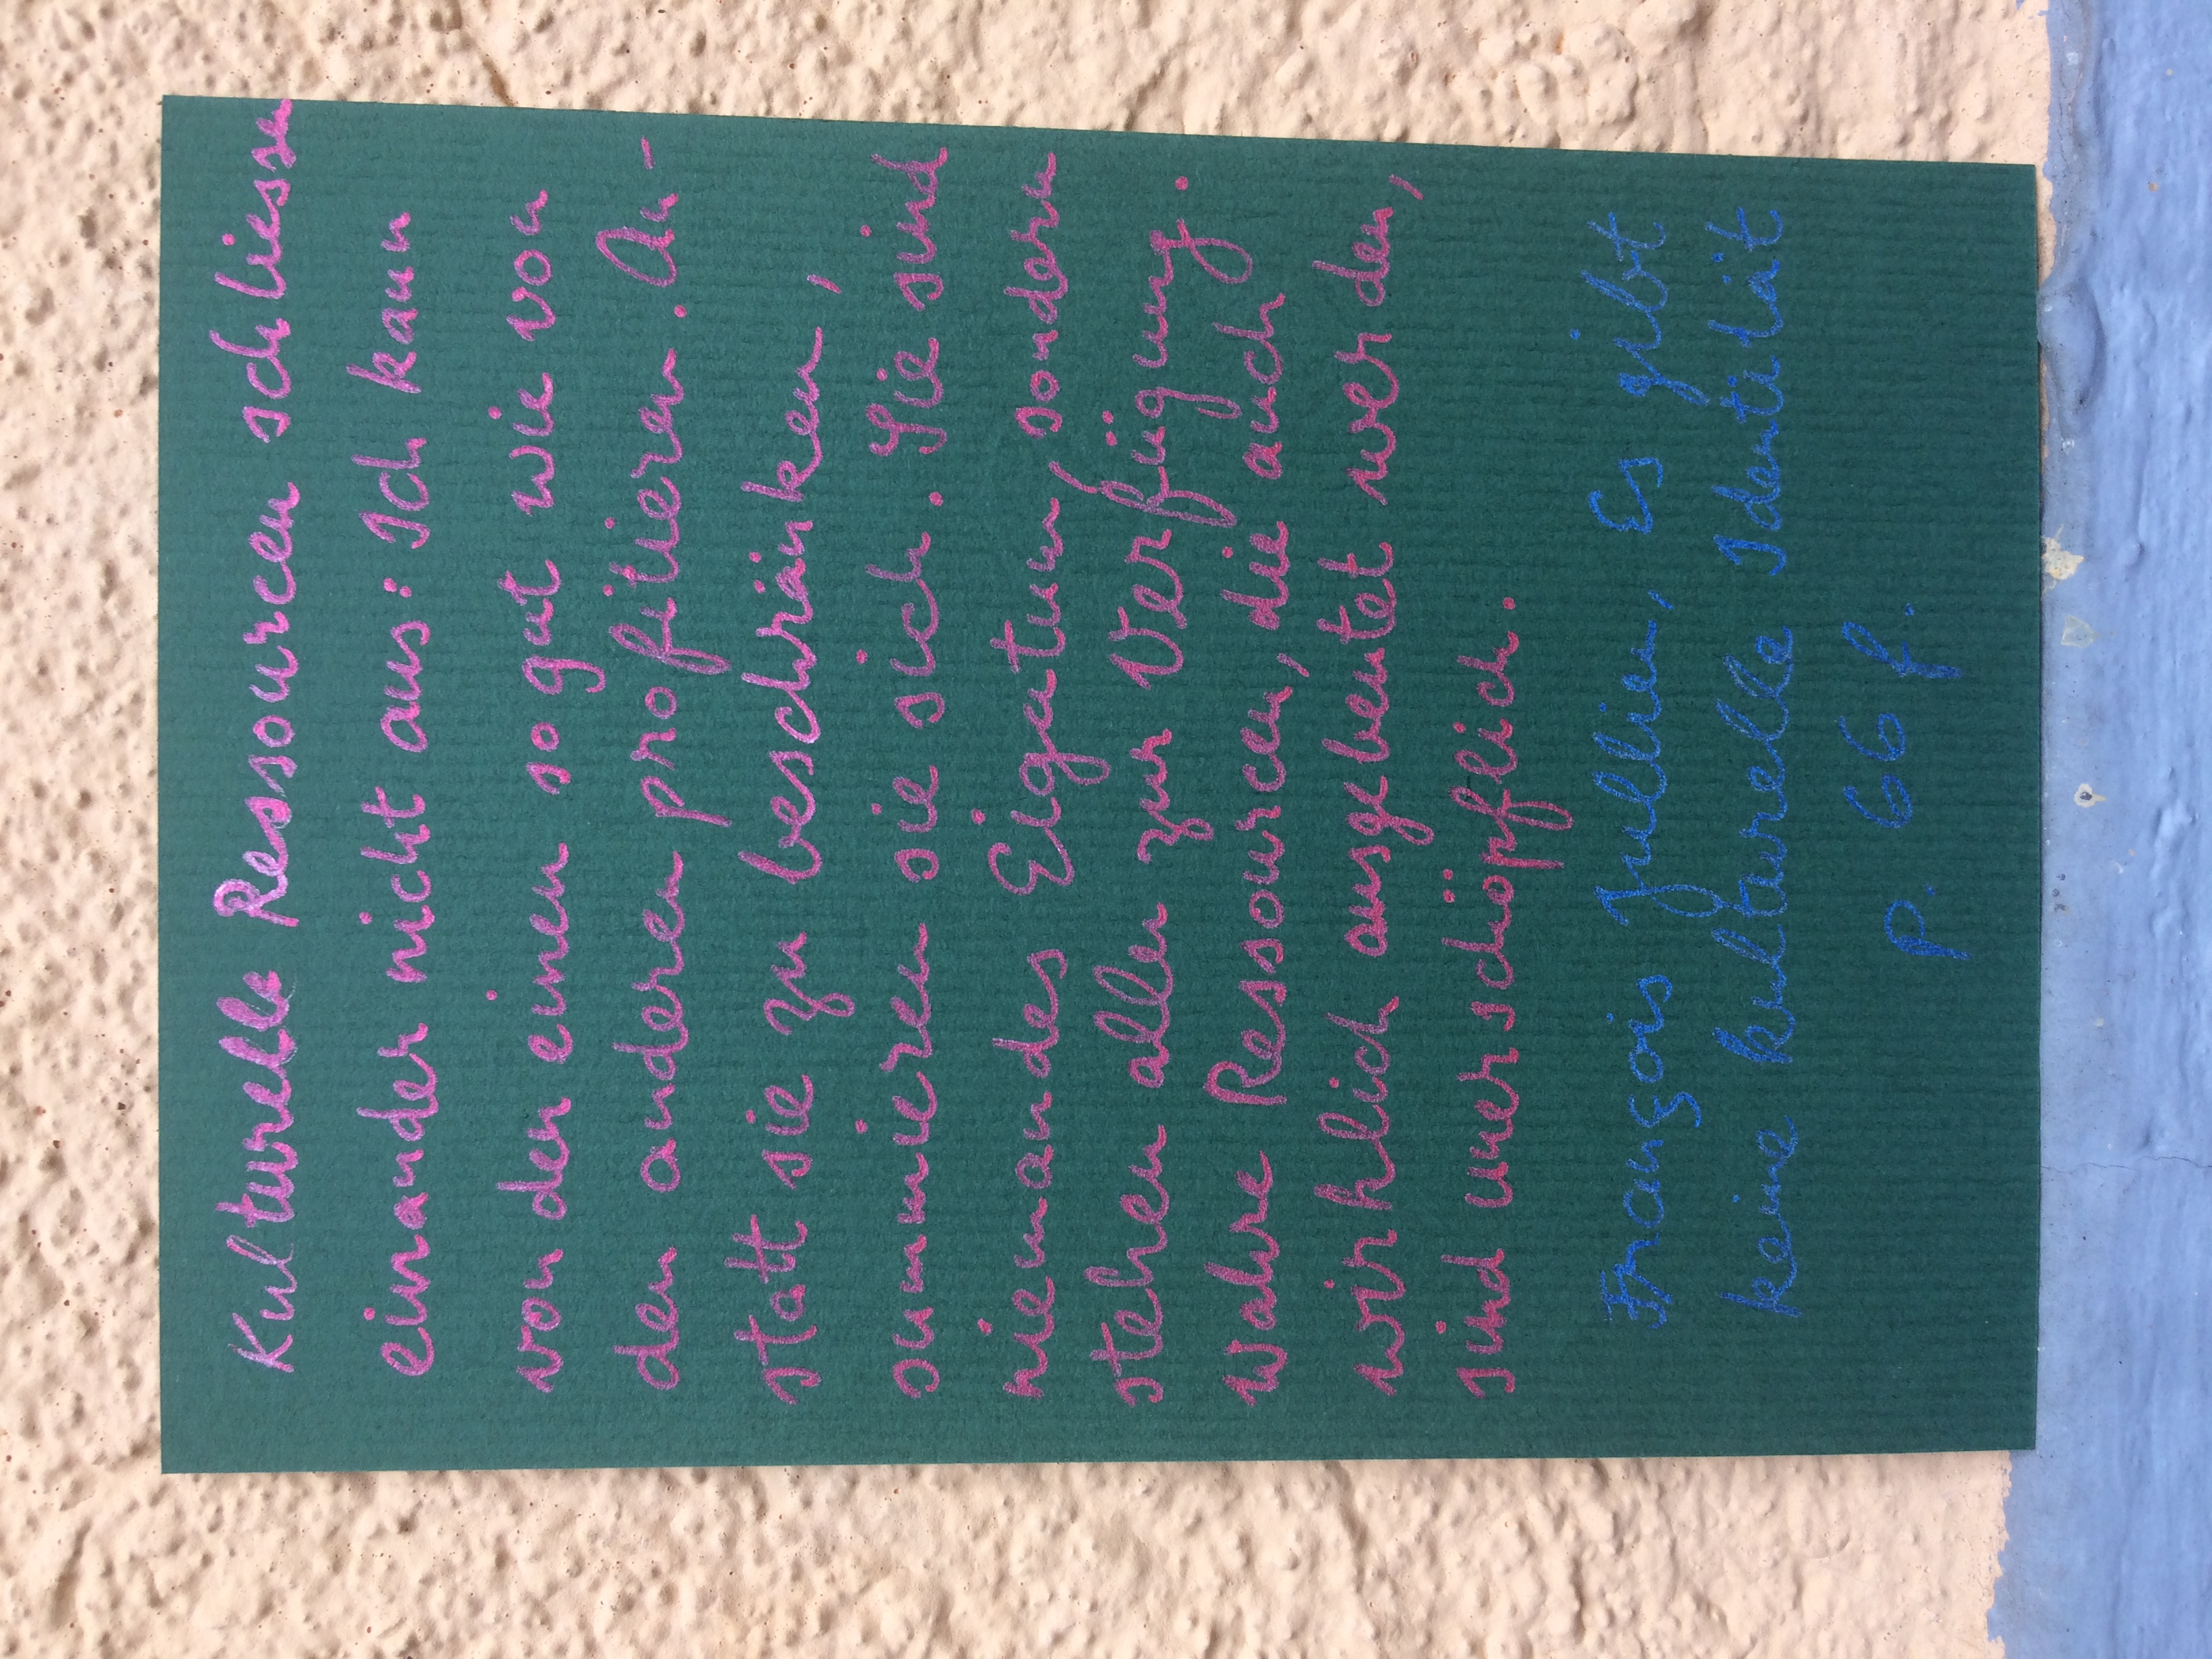 Kulturelle Ressourcen schliessen
einander nicht aus: Ich kann
von den einen so gut wie von
den anderen profitieren. An-
statt sie zu beschränken,
summieren sie sich. Sie sind
niemandes Eigentum, sondern
stehen allen zur Verfügung.
Wahre Ressourcen, die auch
wirklich ausgebeutet werden,
sind unerschöpflich.
François Jullien, Es gibt
keine kulturelle Identität
p. 66 f.